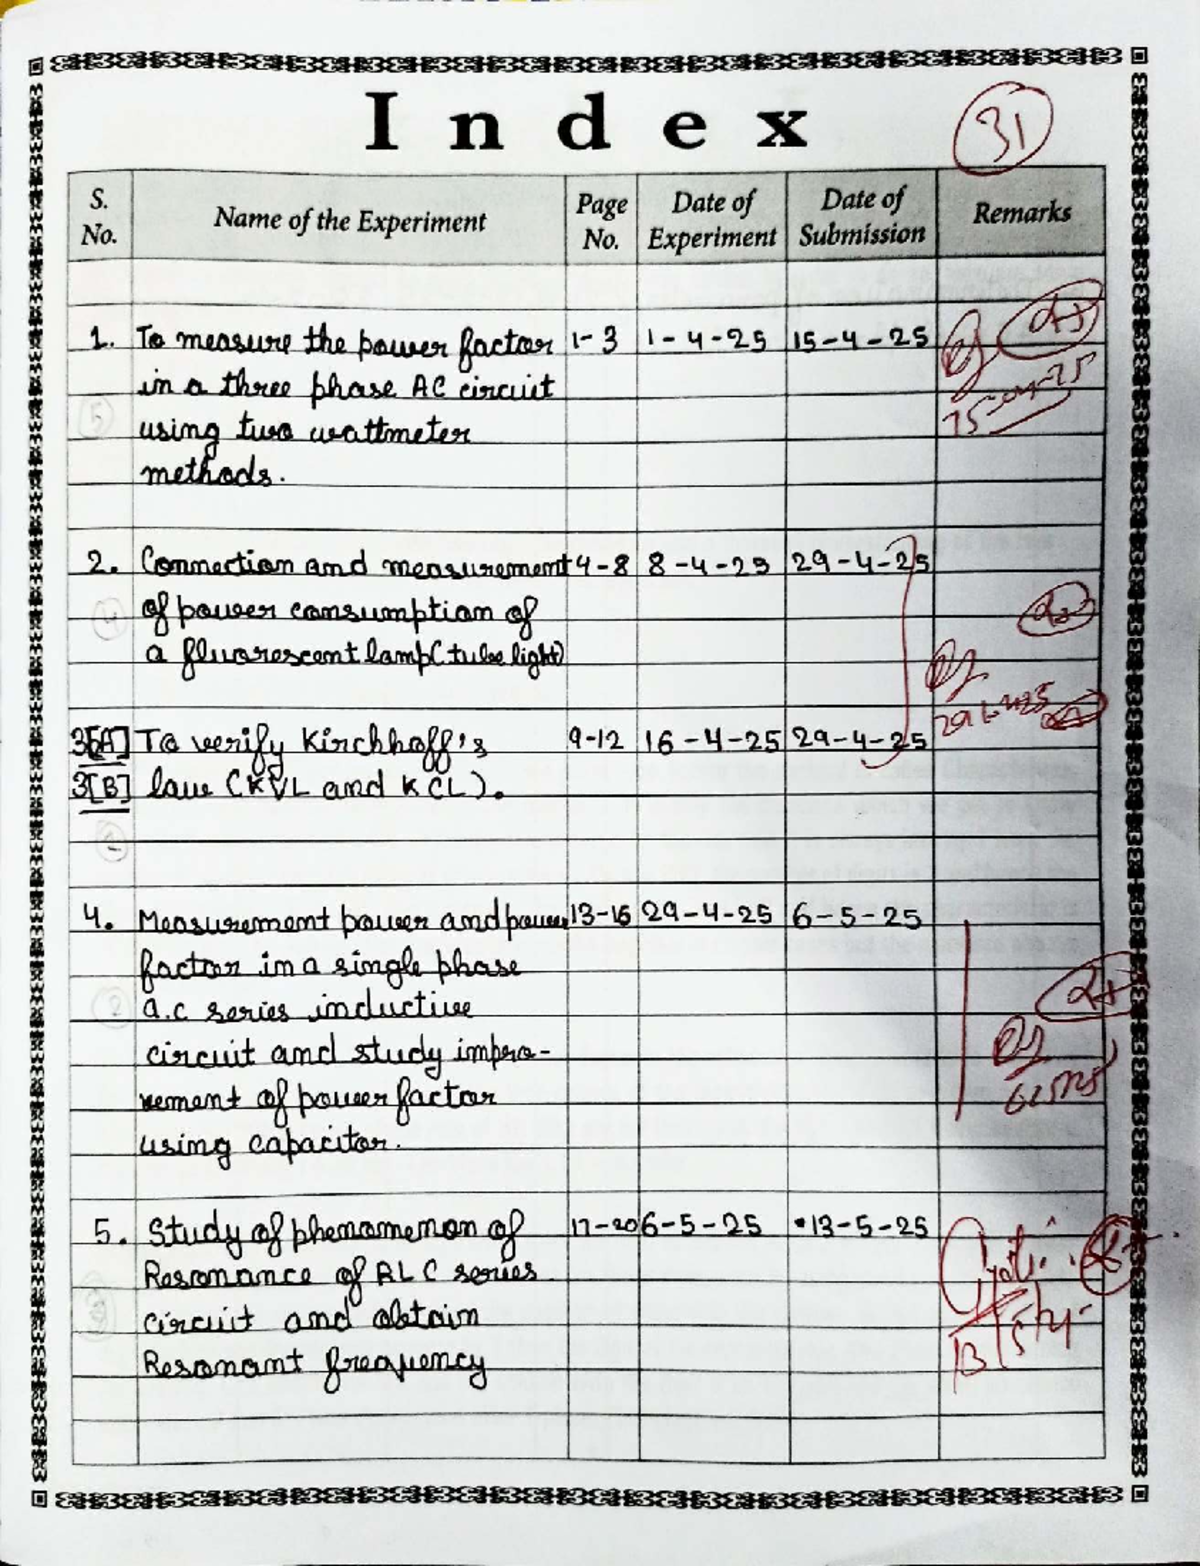 Index
31
S. No.
Name of the Experiment
Page No.
Date of Experiment
Date of Submission
Remarks
1. To measure the power factor 1-3 1-4-25 15-4-25
in a three phase AC circuit
using two wattmeter
methods.
15-04-25
5
2. Connection and measurement 4-8 8-4-25 29-4-25
of power consumption of
a fluorescent lamp(tube light)
4
3[A] To verify Kirchhoff's 9-12 16-4-25 29-4-25
3[B] law (KVL and KCL).
4. Measurement power and power 13-16 29-4-25 6-5-25
factor in a single phase
a.c series inductive
circuit and study impro-
vement of power factor
using capacitor.
5. Study of phenomenon of 17-20 6-5-25 13-5-25
Resonance of RLC series
circuit and obtain
Resonant frequency